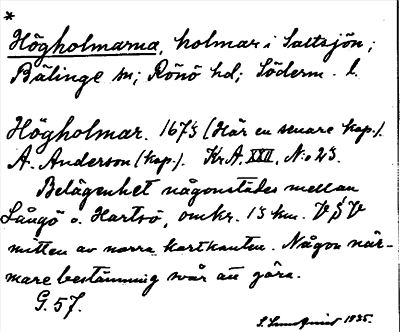 *
Högholmarna, holmar i Saltsjön;
Bälinge sn; Rönö hd; Söderm. l.
Högholmar. 1675 (Här en senare kop.).
A. Anderson (kop.). Kr. A. XXII, N:o 23.
Belägenhet någonstädes mellan
Långö o. Hartsö, omkr. 15 km. V ş V
mitten av norra kartkanten. Någon när-
mare bestämning svår att göra.
G. 57.
1935.